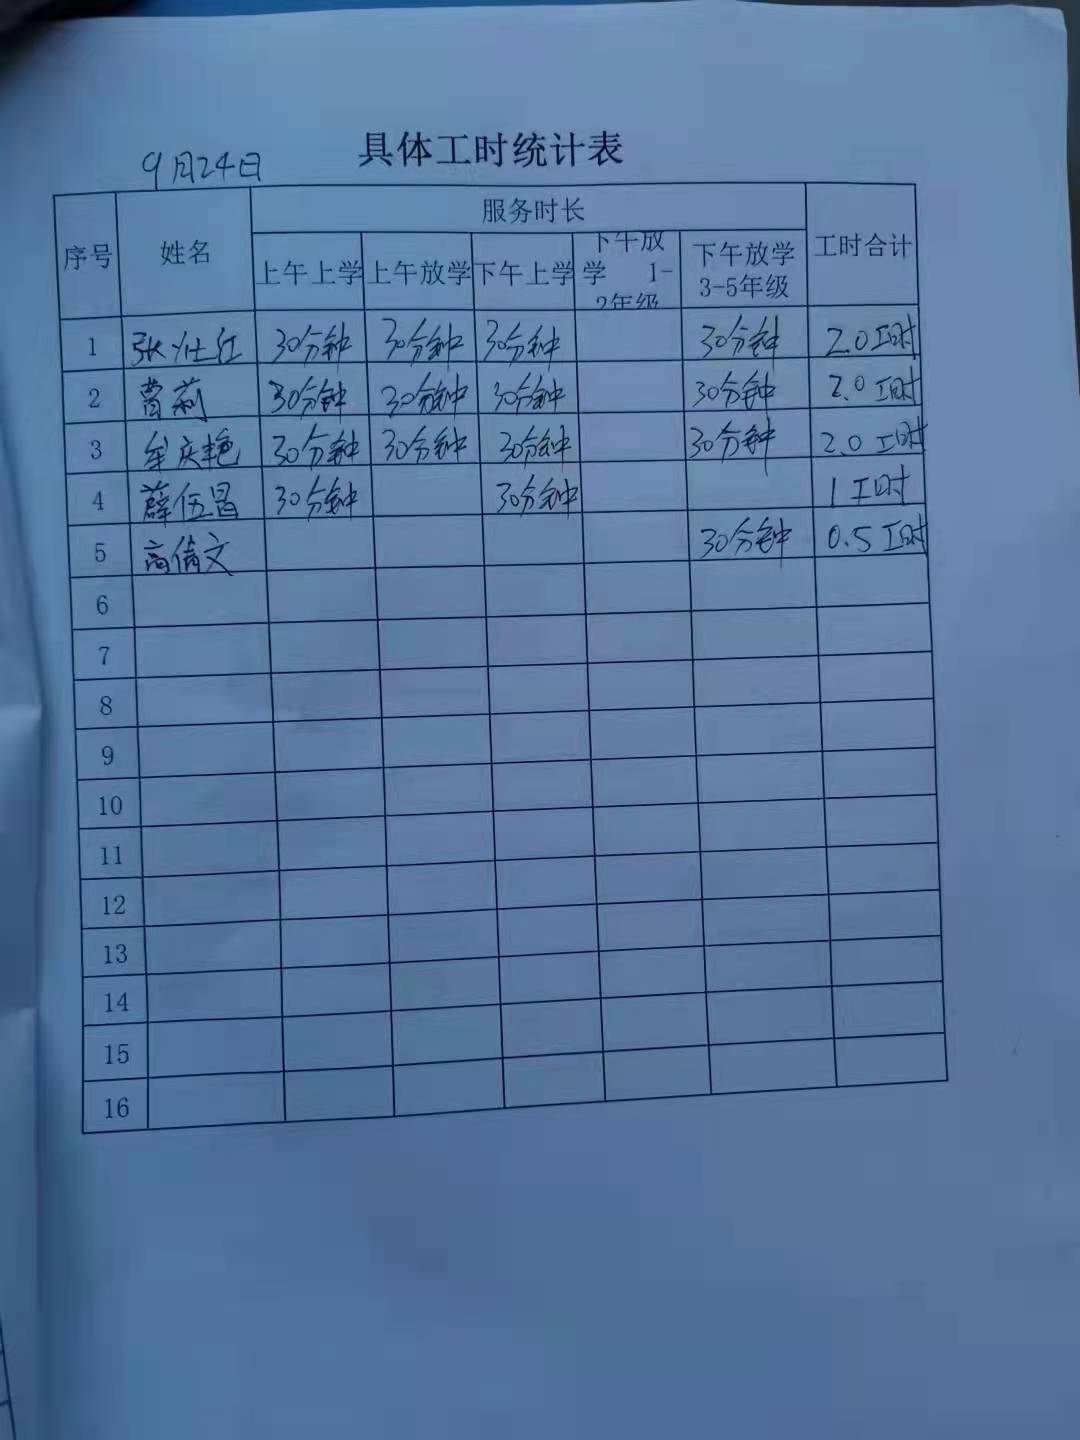 具体工时统计表
9月24日
序号 姓名 服务时长 工时合计
上午上学 上午放学 下午上学 下午放学 1-2年级 下午放学3-5年级
1 张灶红 30分钟 30分钟 30分钟 30分钟 2.0工时
2 曹莉 30分钟 30分钟 30分钟 30分钟 2.0工时
3 牟庆艳 30分钟 30分钟 30分钟 30分钟 2.0工时
4 薛伍昌 30分钟 30分钟 1工时
5 高倩文 30分钟 0.5工时
6
7
8
9
10
11
12
13
14
15
16